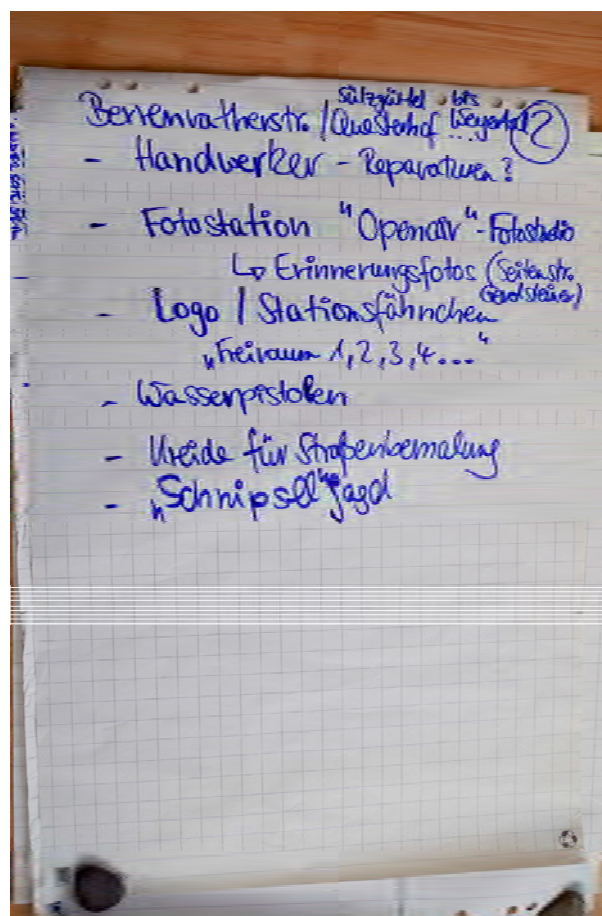 Sülzgürtel bis
Berrenratherstr. / Questerhof Weyertal ... 2
- Handwerker - Reparaturen?
- Fotostation "Openair"-Fotostudio
↳ Erinnerungsfotos (Seitenstr.
Gerolsteiner)
- Logo / Stationsfähnchen
„Freiraum 1, 2, 3, 4..."
- Wasserpistolen
- Kreide für Straßenbemalung
- „Schnipsel"jagd